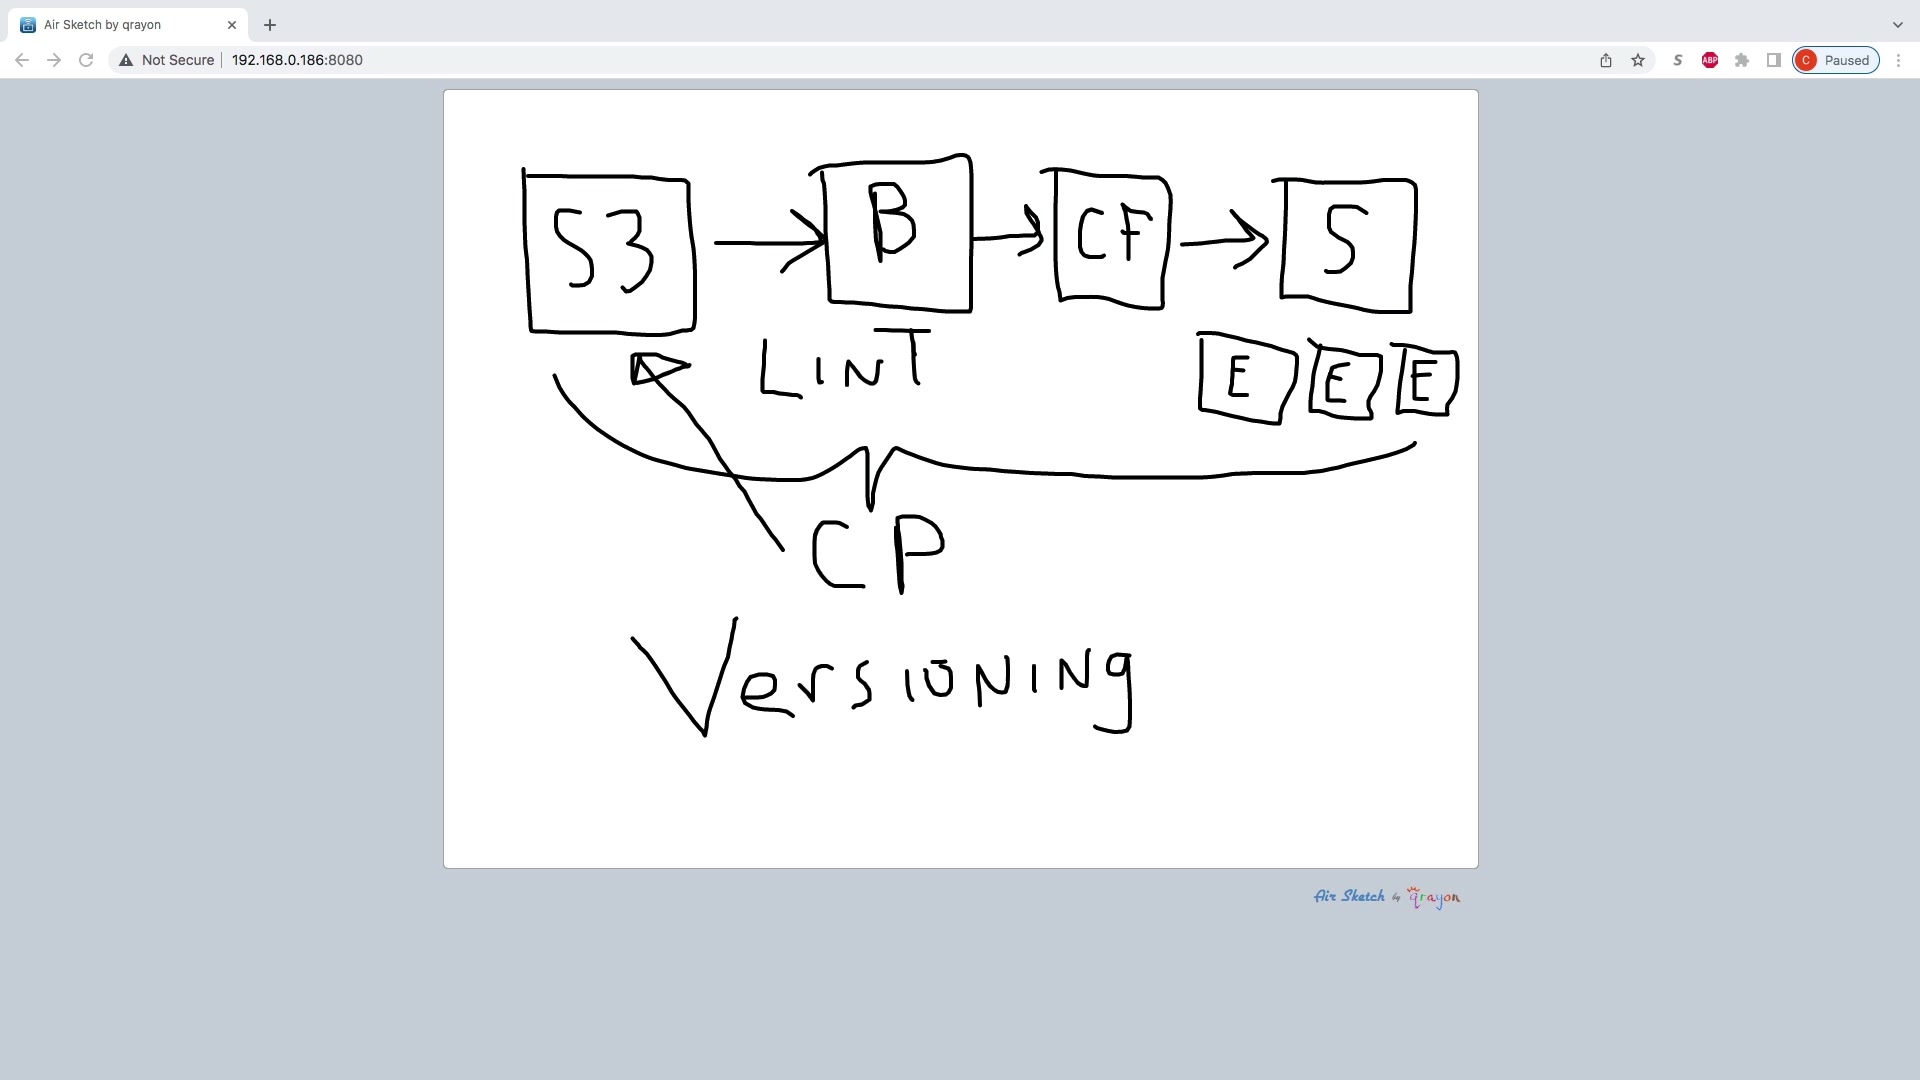 Air Sketch by qrayon
Not Secure
192.168.0.186:8080
ABP
C
Paused
S3
B
CF
S
LinT
E E E
CP
Versioning
Air Sketch by qrayon